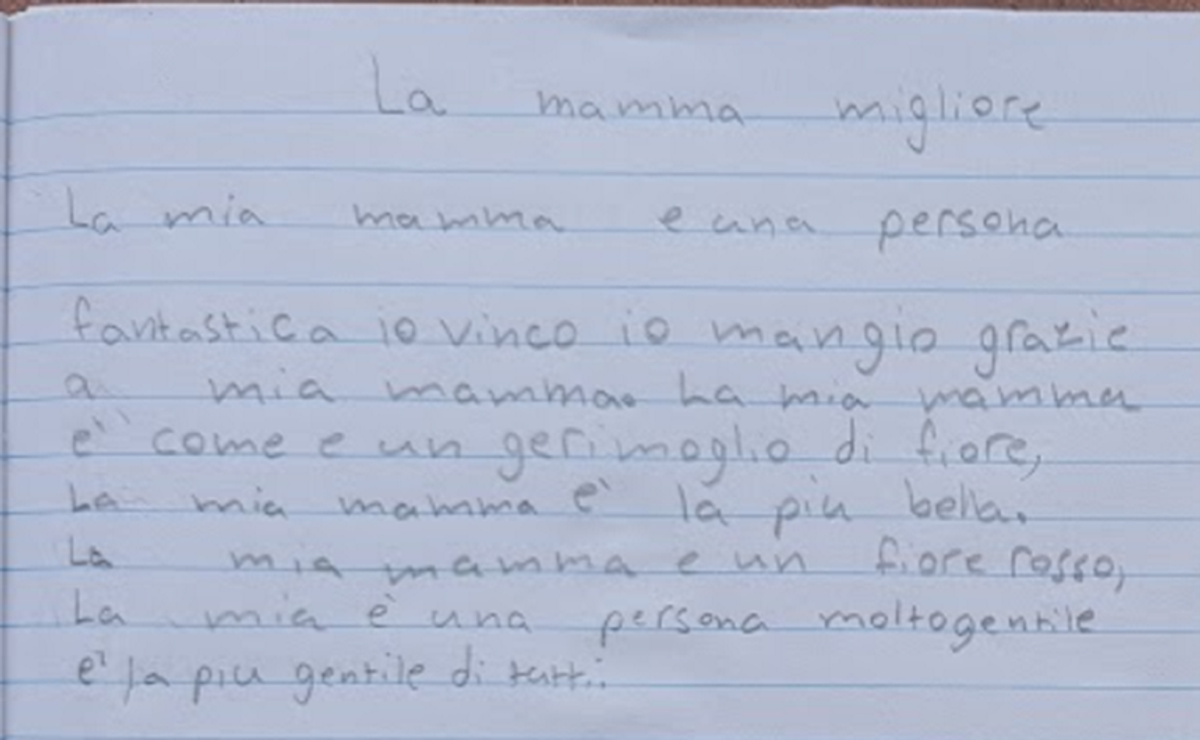 La mamma migliore
La mia mamma e una persona
fantastica io vinco io mangio grazie
a mia mamma. La mia mamma
e' come e un gerimoglio di fiore,
La mia mamma e' la piu bella.
La mia mamma e un fiore rosso,
La mia è una persona moltogentile
e' la piu gentile di tutti.